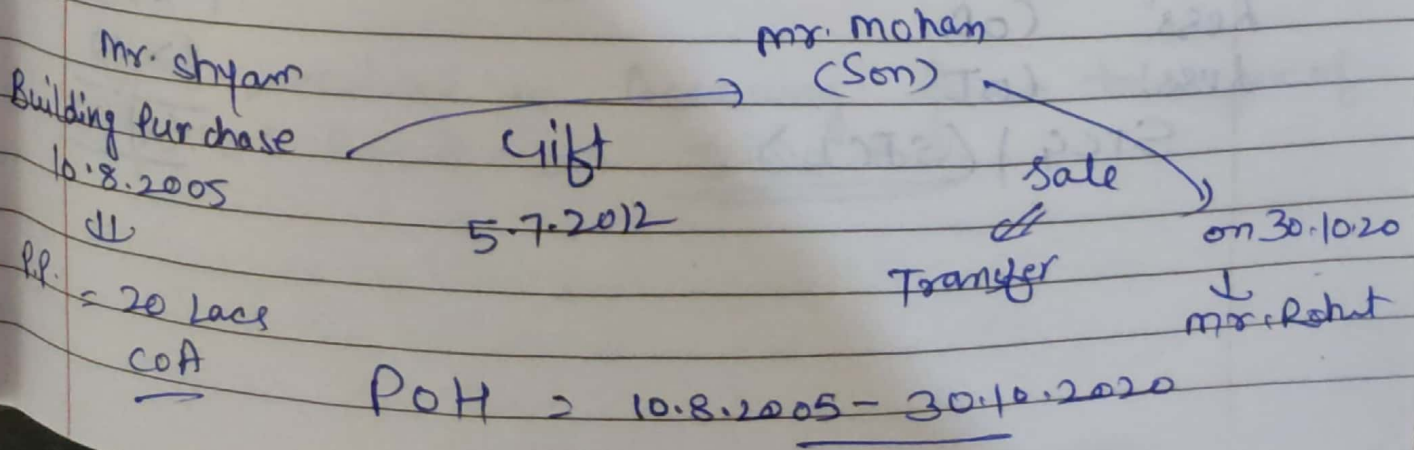 Mr. Shyam
Building Purchase
10.8.2005
P.P.
= 20 Lacs
COA
Gift
5.7.2012
Mr. Mohan
(Son)
Sale
Transfer
on 30.10.20
Mr. Rohit
POH = 10.8.2005 - 30.10.2020